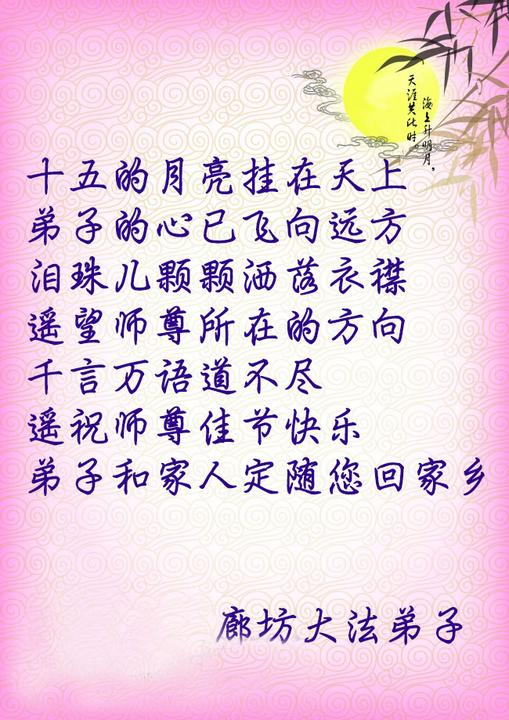 海上升明月，
天涯共此时。
十五的月亮挂在天上
弟子的心已飞向远方
泪珠儿颗颗洒落衣襟
遥望师尊所在的方向
千言万语道不尽
遥祝师尊佳节快乐
弟子和家人定随您回家乡
廊坊大法弟子